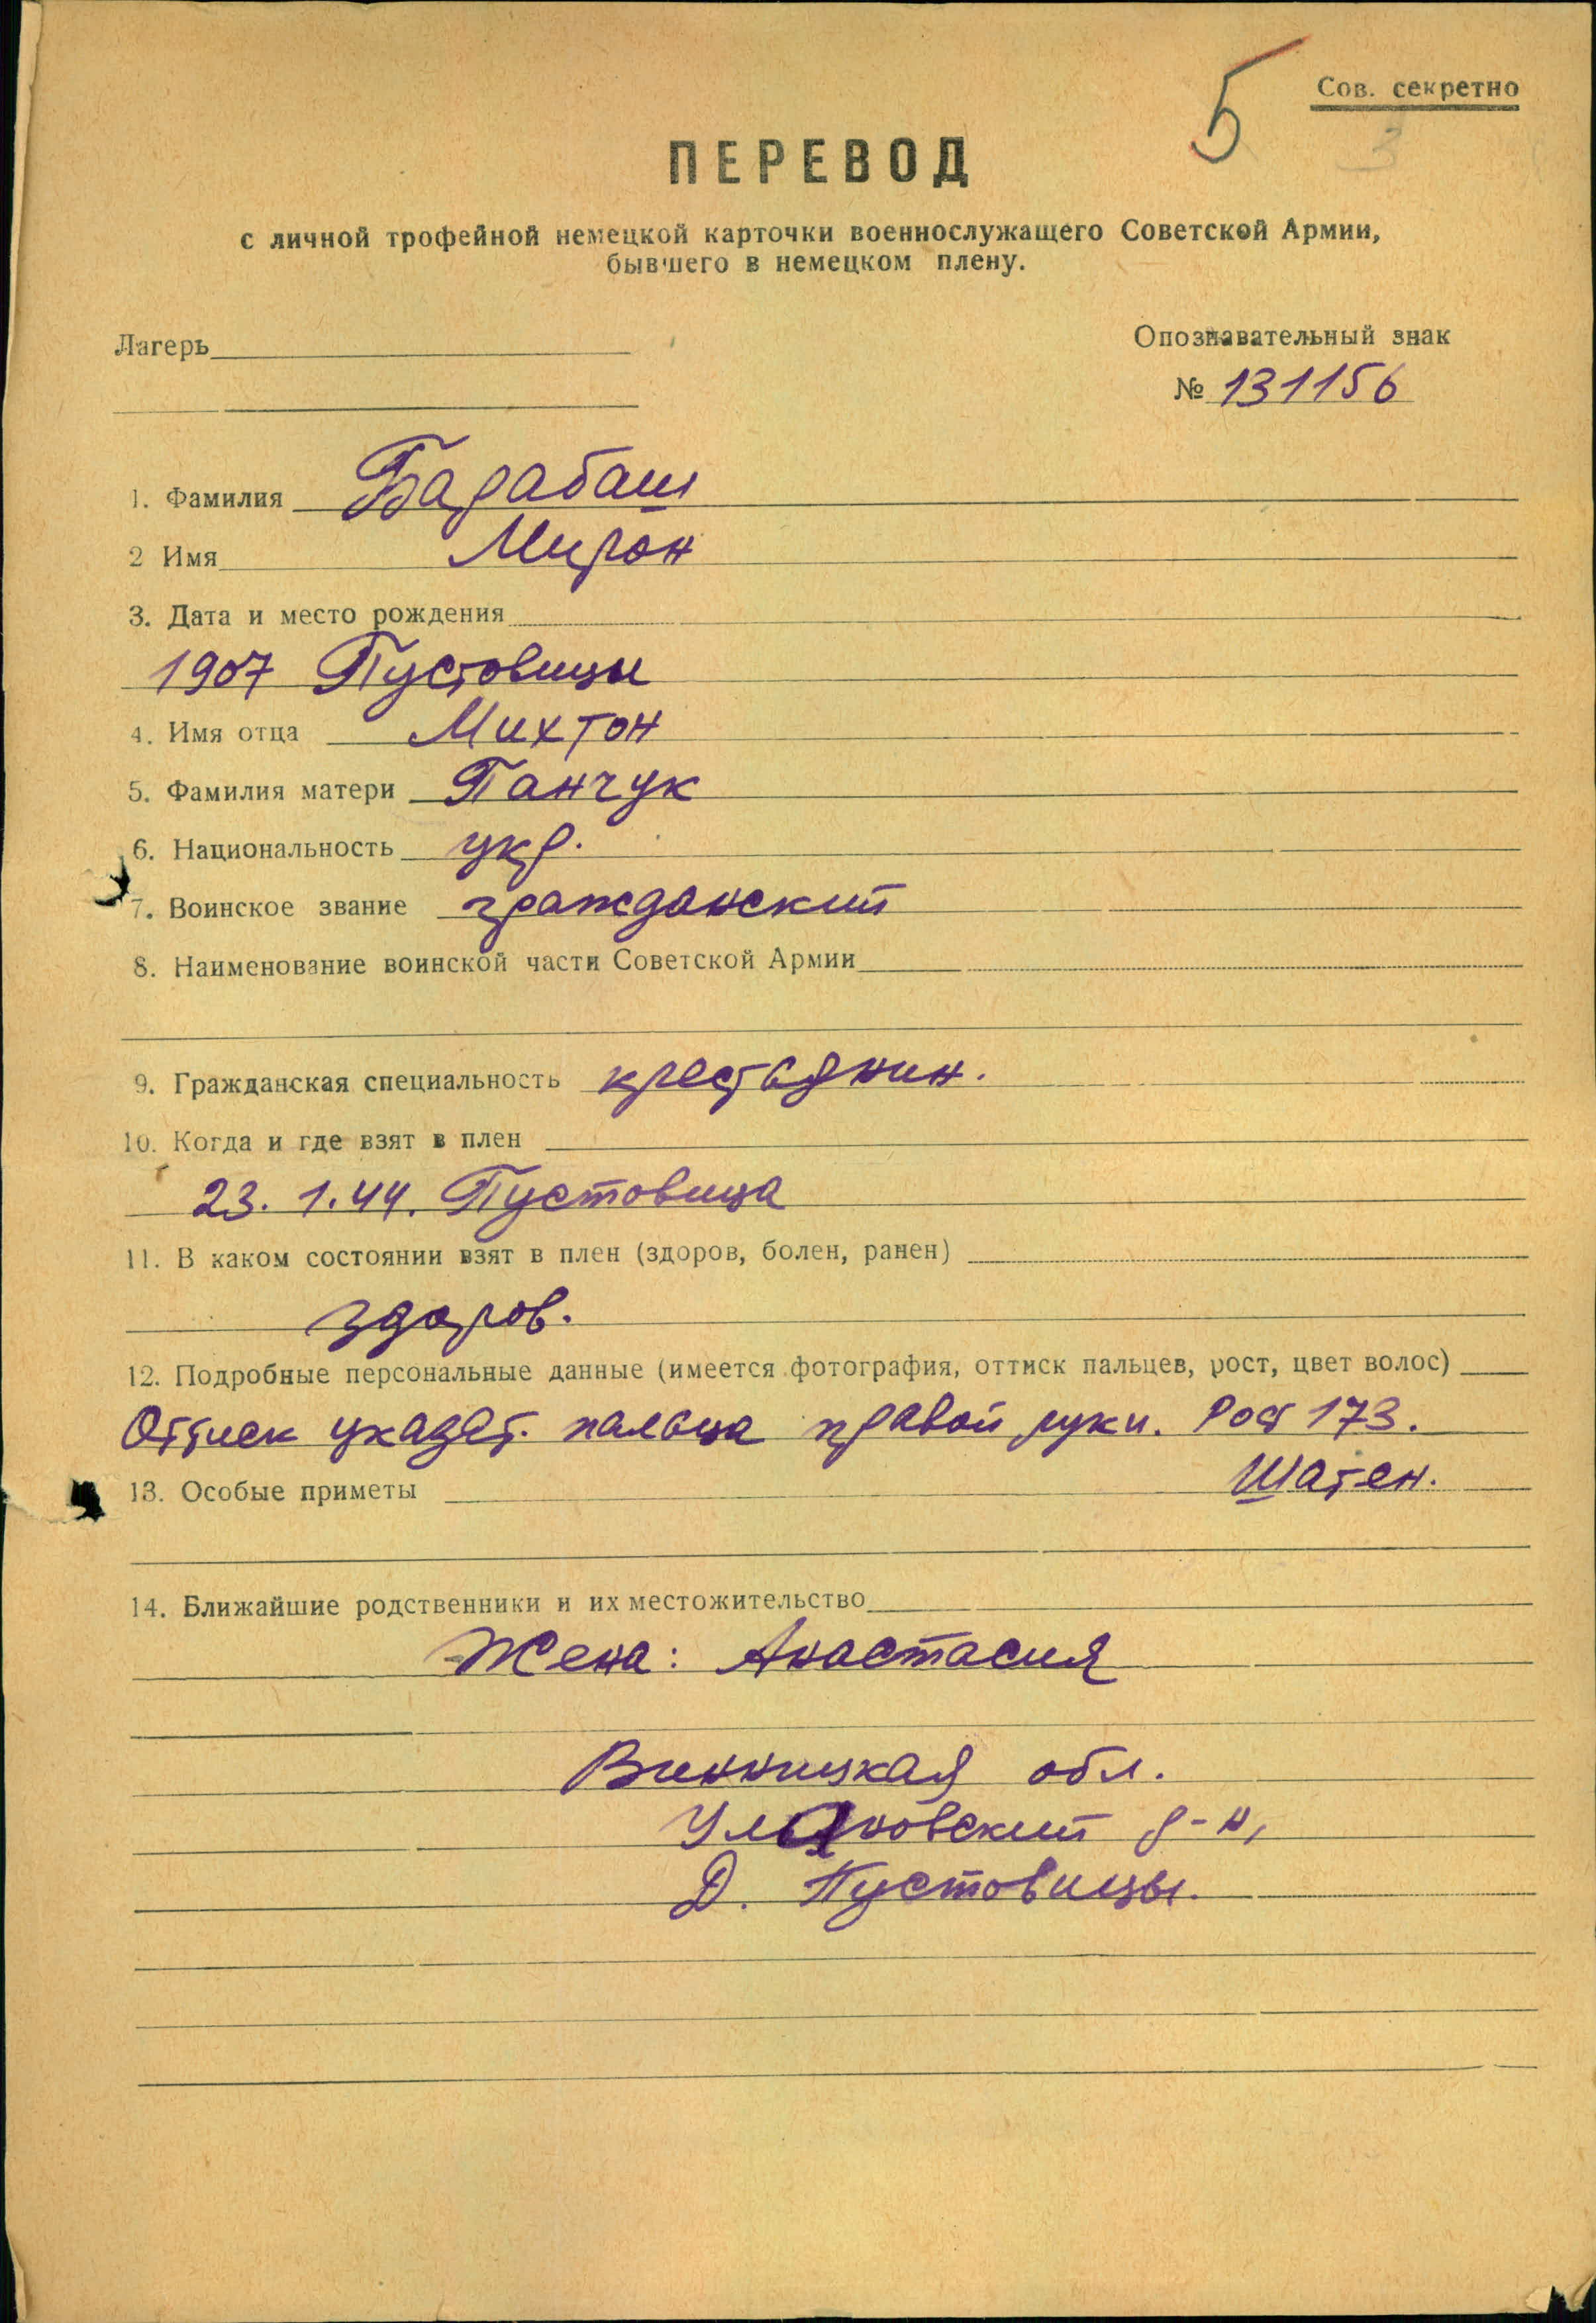 5
Сов. секретно
3
ПЕРЕВОД
с личной трофейной немецкой карточки военнослужащего Советской Армии,
бывшего в немецком плену.
Лагерь
Опознавательный знак
№ 131156
1. Фамилия Барабаш
2 Имя Мирон
3. Дата и место рождения
1907 Пустовицы
4. Имя отца Михтон
5. Фамилия матери Панчук
6. Национальность укр.
7. Воинское звание гражданский
8. Наименование воинской части Советской Армии
9. Гражданская специальность крестьянин.
10. Когда и где взят в плен
23. 1. 44. Пустовица
11. В каком состоянии взят в плен (здоров, болен, ранен)
здоров.
12. Подробные персональные данные (имеется фотография, оттиск пальцев, рост, цвет волос)
Оттиск указат. пальца правой руки. Рост 173.
Шатен.
13. Особые приметы
14. Ближайшие родственники и их местожительство
Жена: Анастасия
Винницкая обл.
Улановский р-н,
Д. Пустовицы.